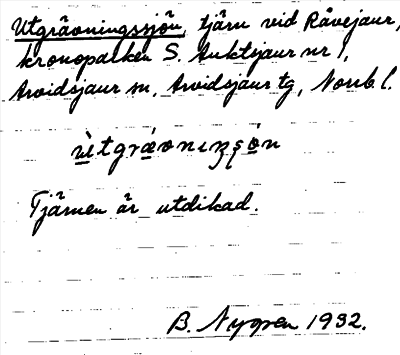 Utgrävningssjön, tjärn vid Råvejaur,
kronoparken S. Auktsjaur nr 1,
Arvidsjaur sn, Arvidsjaur tg, Norrb. l.
Tjärnen är utdikad.
B. Nygren 1932.